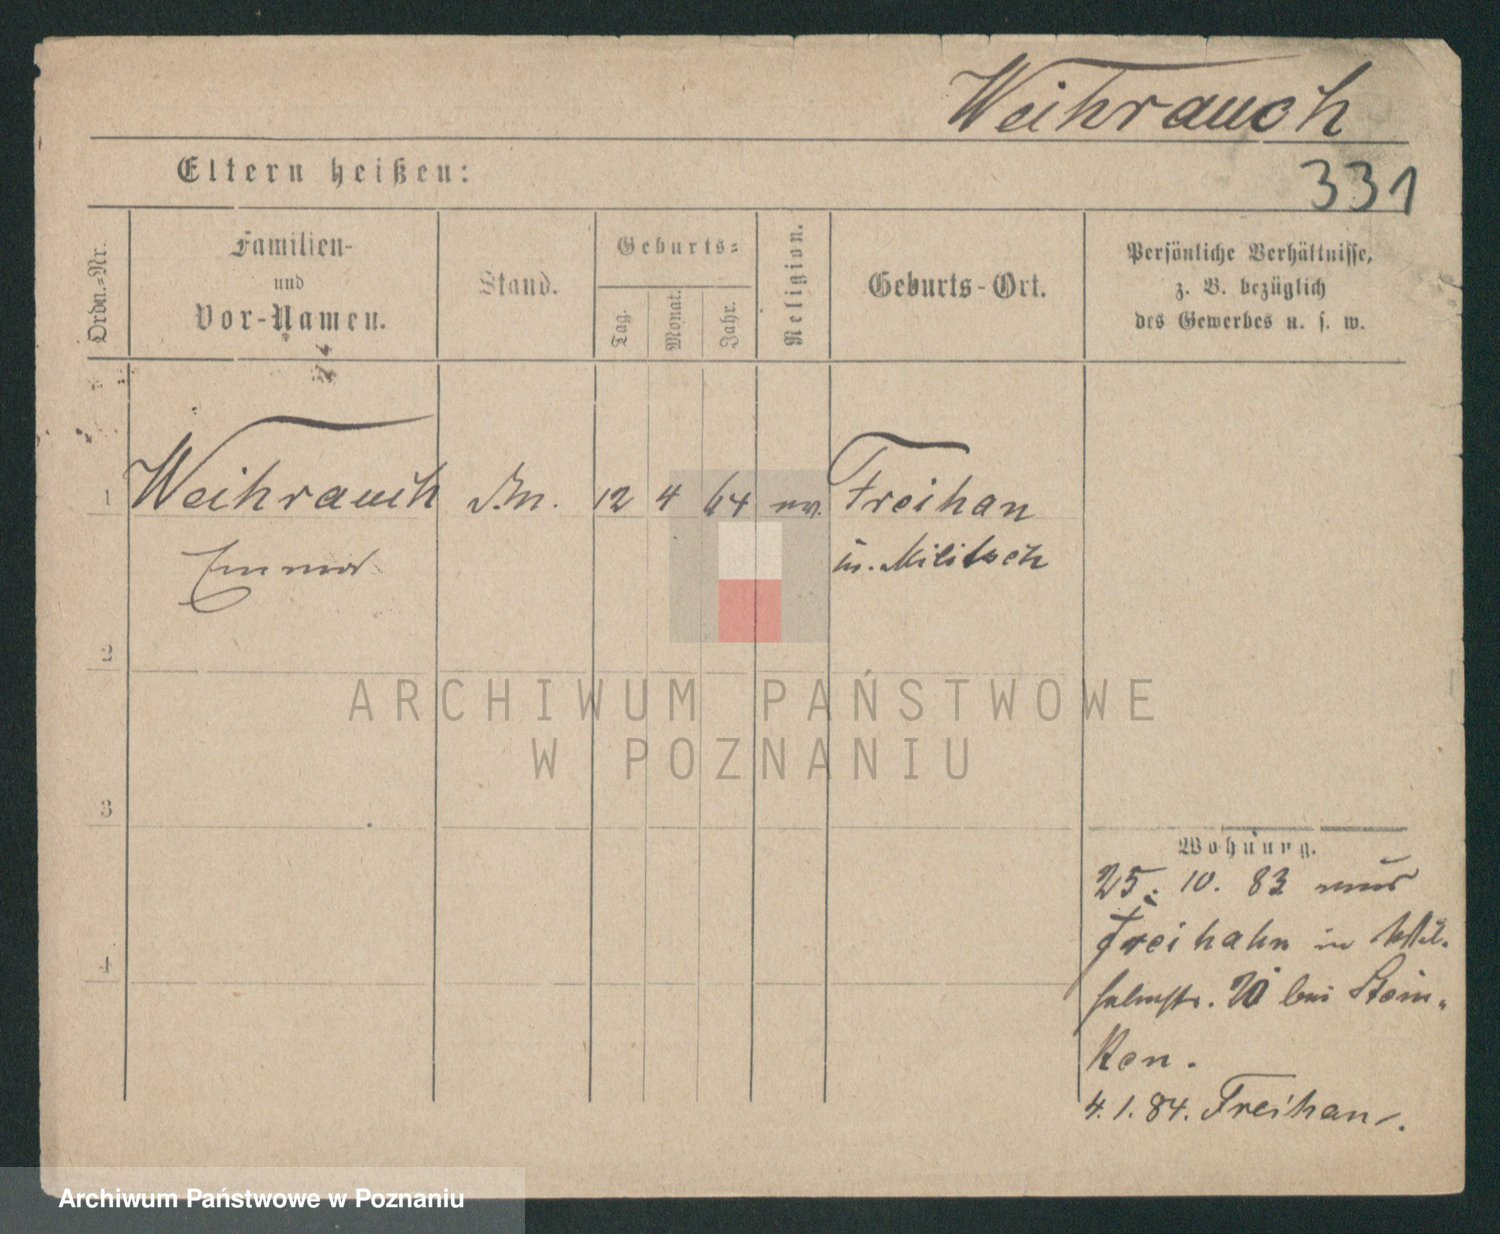 Weihrauch
Eltern heißen:
331
Ordn.=Nr.
Familien-
und
Vor-Namen.
Stand.
Geburts=
Tag.
Monat.
Jahr.
Religion.
Geburts-Ort.
Persönliche Verhältnisse,
z. B. bezüglich
des Gewerbes u. s. w.
1 Weihrauch 12 4 64 ev. Freihan
Emma Militsch
2
ARCHIWUM PAŃSTWOWE
W POZNANIU
3
Wohnung.
25. 10. 83 aus
Freihahn in Wil-
helmstr. 20 bei Stein-
ken.
4
4. 1. 84. Freihan.
Archiwum Państwowe w Poznaniu